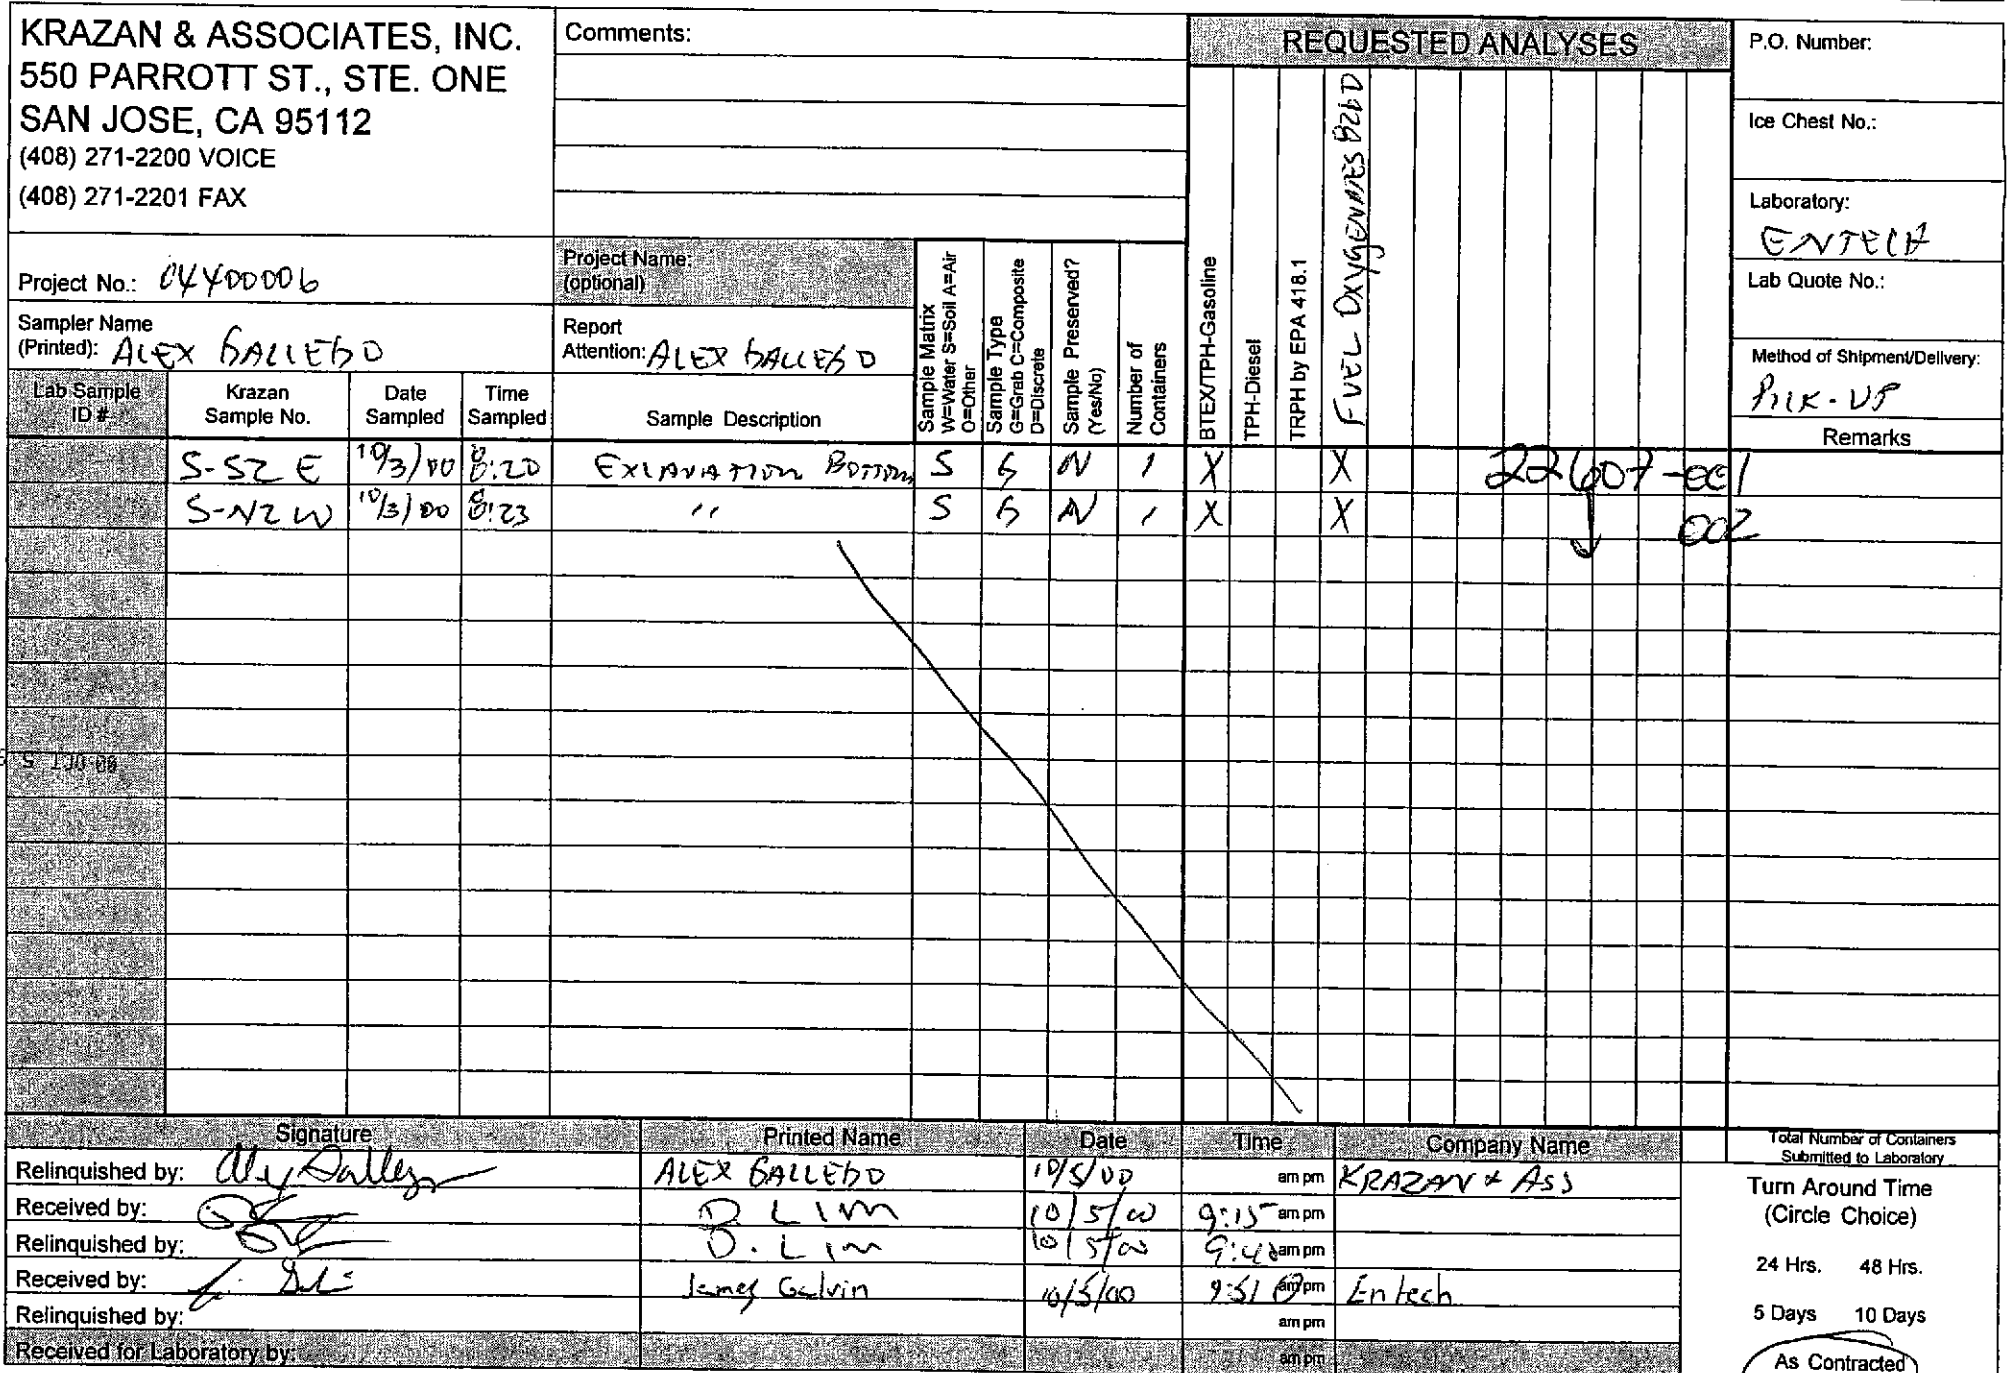 KRAZAN & ASSOCIATES, INC.
550 PARROTT ST., STE. ONE
SAN JOSE, CA 95112
(408) 271-2200 VOICE
(408) 271-2201 FAX
Comments:
REQUESTED ANALYSES
P.O. Number:
Ice Chest No.:
Laboratory:
ENTECH
Lab Quote No.:
Method of Shipment/Delivery:
PICK-UP
Remarks
Project No.: 04400006
Project Name:
(optional)
Sampler Name
(Printed): ALEX GALLEGO
Report
Attention: ALEX GALLEGO
Lab Sample
ID #
Krazan
Sample No.
Date
Sampled
Time
Sampled
Sample Description
Sample Matrix
W=Water S=Soil A=Air
O=Other
Sample Type
G=Grab C=Composite
D=Discrete
Sample Preserved?
(Yes/No)
Number of
Containers
BTEX/TPH-Gasoline
TPH-Diesel
TRPH by EPA 418.1
FUEL OXYGENATES 8260
S-S2 E 10/3/00 8:20 EXCAVATION BOTTOM S G N 1 X X 22607-001
S-N2 W 10/3/00 8:23 " S G N 1 X X 002
00 OCT 5
Signature Printed Name Date Time Company Name
Total Number of Containers
Submitted to Laboratory
Relinquished by: Alex Gallego ALEX GALLEGO 10/5/00 am pm KRAZAN & ASS
Received by: D. LIM 10/5/00 9:15 am pm
Relinquished by: D. Lim 10/5/00 am pm
Received by: James Galvin 10/5/00 9:51 am pm Entech
Relinquished by: am pm
Received for Laboratory by: am pm
Turn Around Time
(Circle Choice)
24 Hrs. 48 Hrs.
5 Days 10 Days
As Contracted